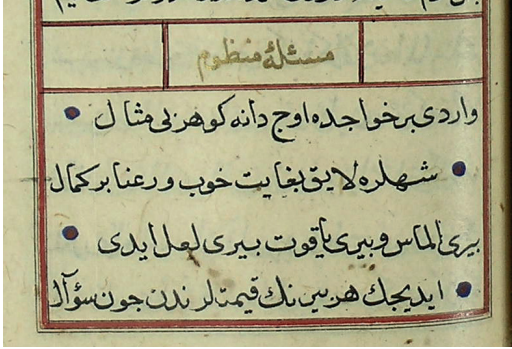 مسئلهٔ منظوم
واردی بر خواجده اوچ دانه کوهر بی مثال
شهلره لایق بغایت خوب و رعنا بر کمال
بیری الماس و بیری یاقوت بیری لعل ایدی
ایدیجك هر بیرینك قیمتلرندن چون سؤال